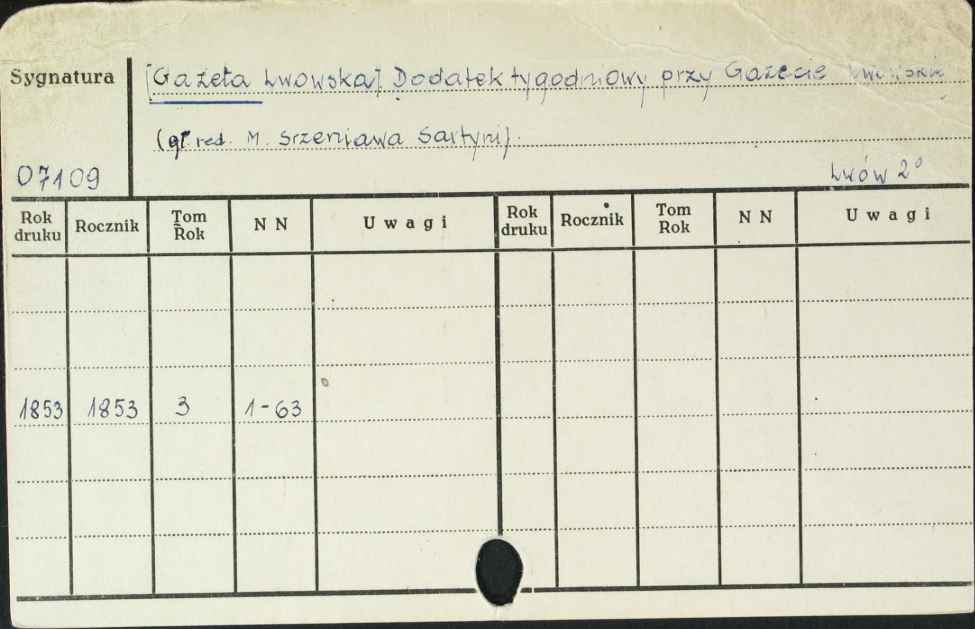 Sygnatura
[Gazeta Lwowska] Dodatek tygodniowy przy Gazecie Lwowskiej
(gł. red. M. Srzeniawa Sartyni).
07109
Lwów 2°
Rok druku Rocznik Tom Rok NN Uwagi Rok druku Rocznik Tom Rok NN Uwagi
1853 1853 3 1-63